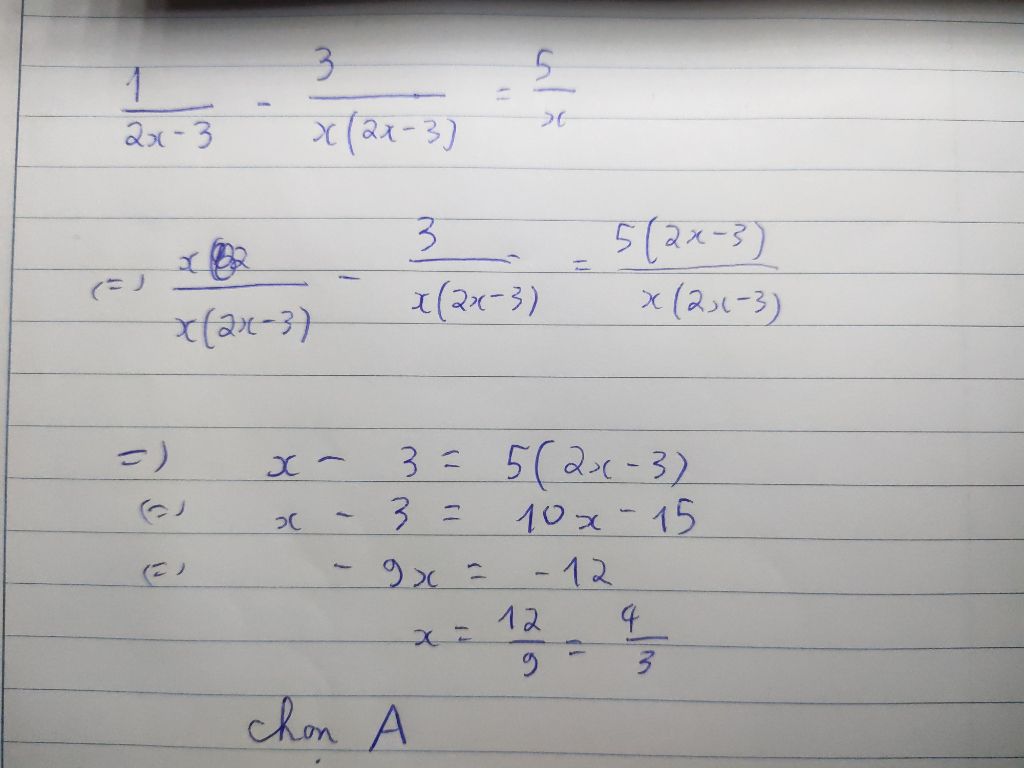 1/(2x-3) - 3/(x(2x-3)) = 5/x
<=> x/(x(2x-3)) - 3/(x(2x-3)) = 5(2x-3)/(x(2x-3))
=> x - 3 = 5(2x-3)
<=> x - 3 = 10x - 15
<=> - 9x = - 12
x = 12/9 = 4/3
chọn A